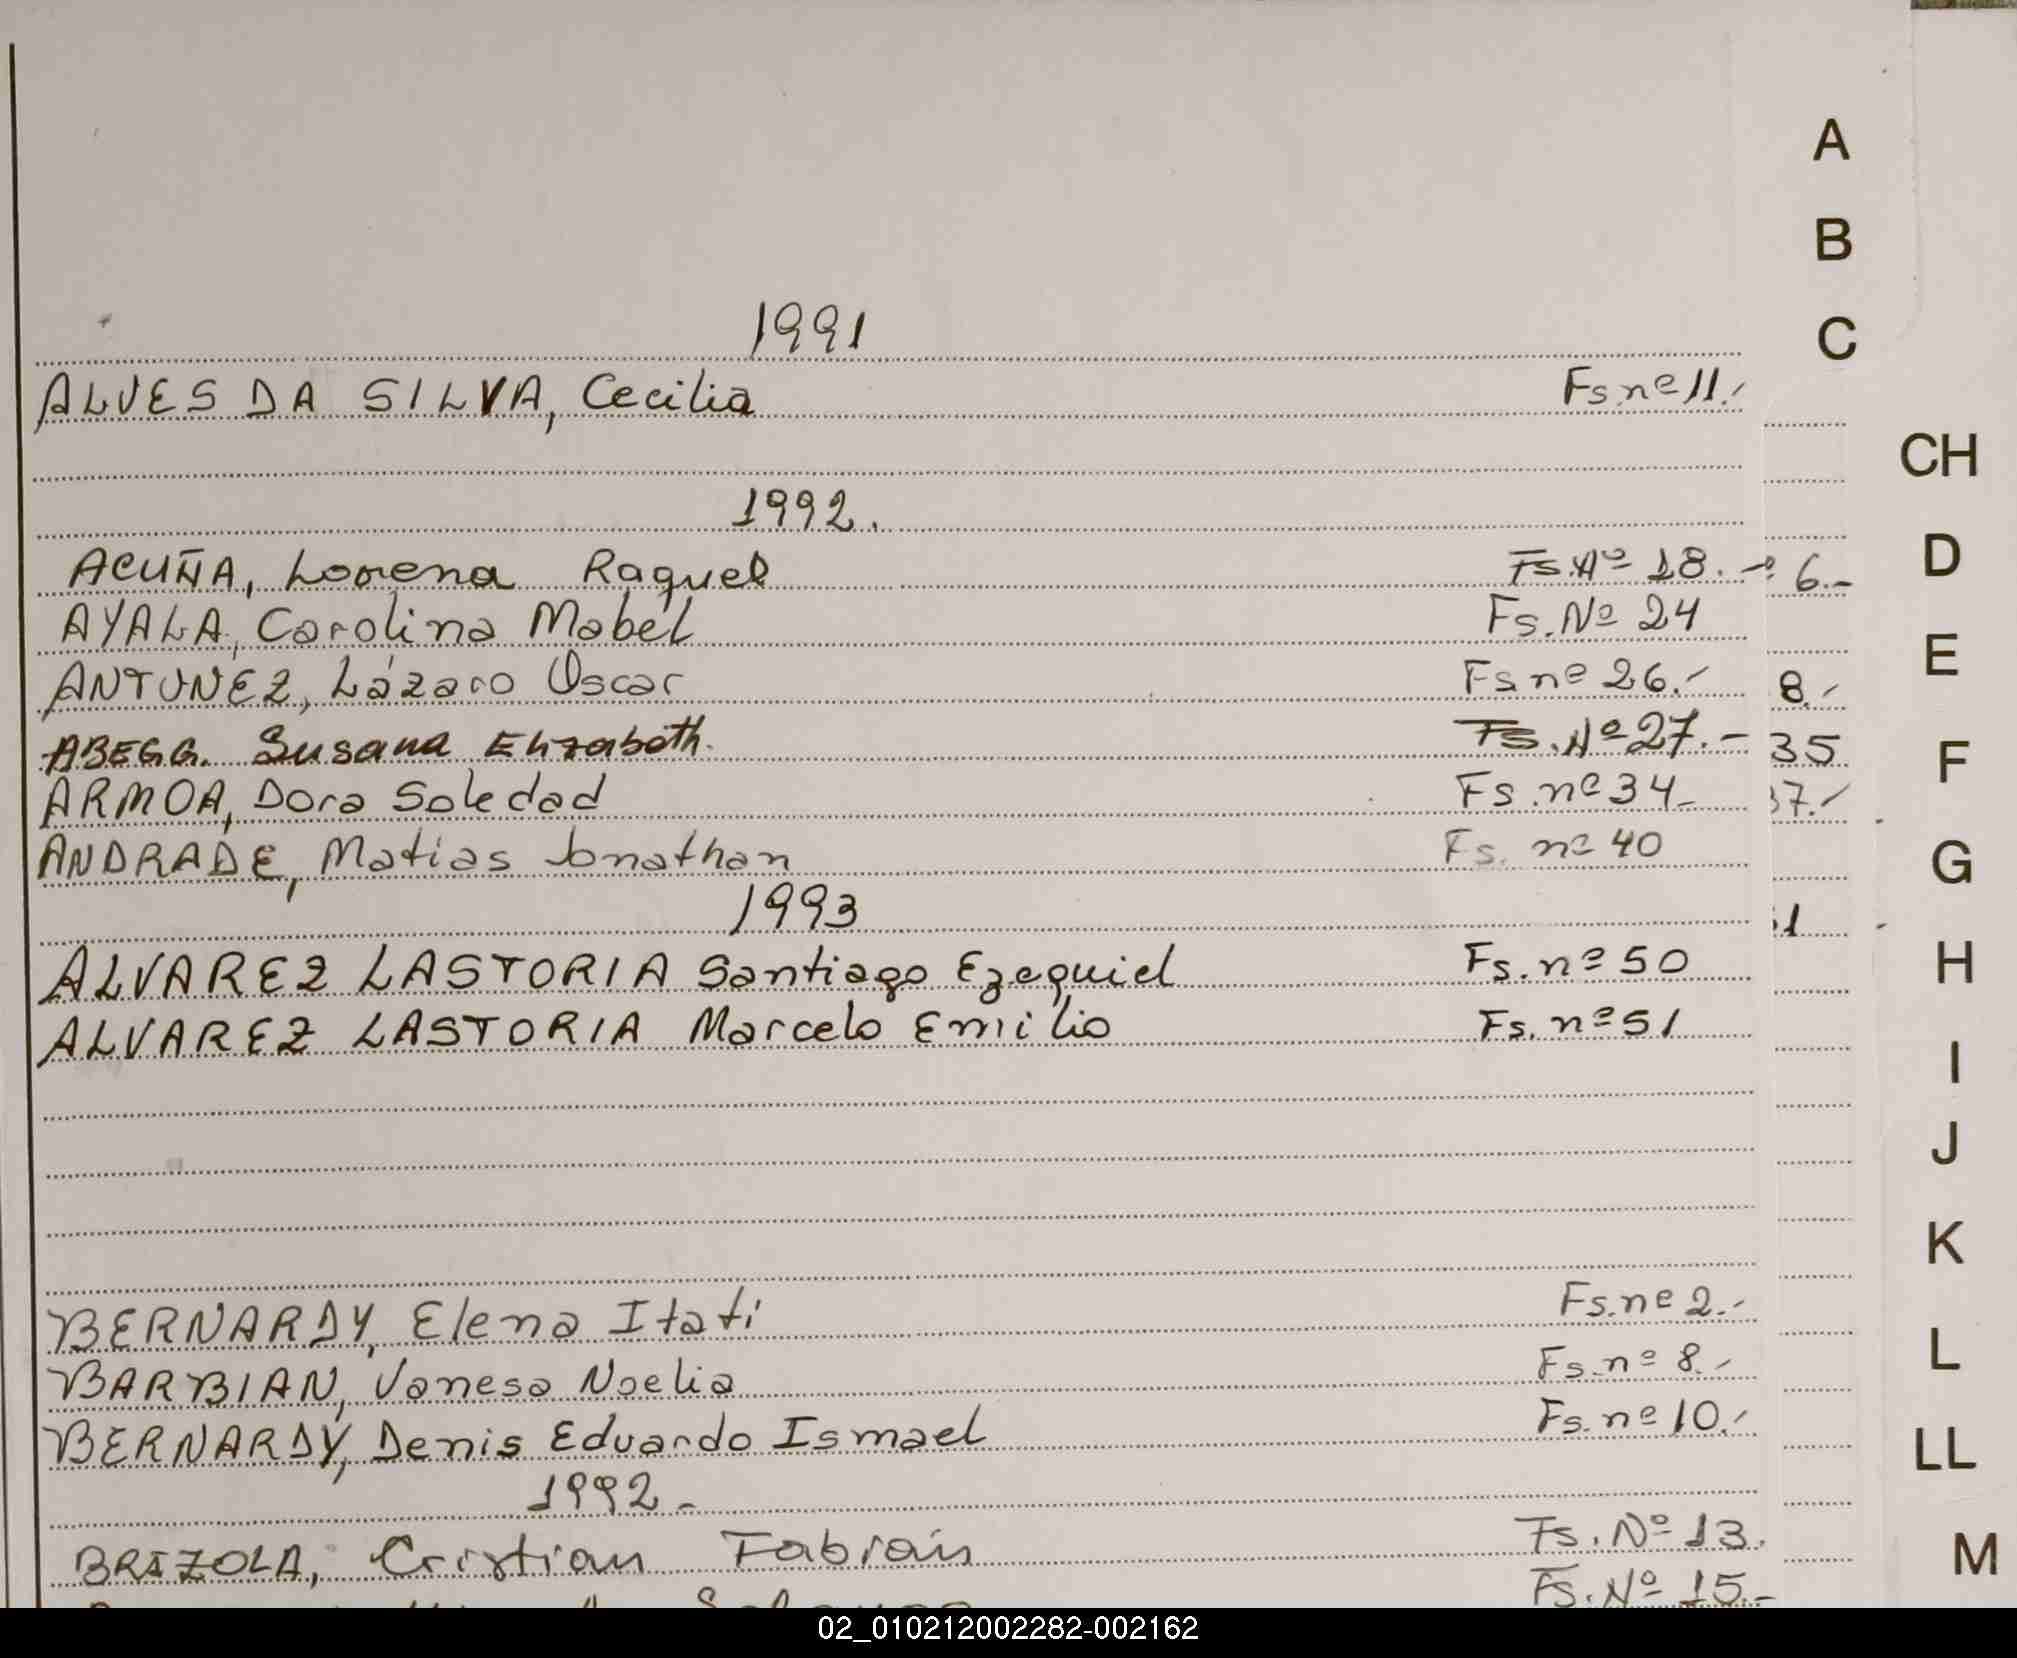 A
B
1991
C
ALVES DA SILVA, Cecilia Fs.nº 11.-
CH
1992.
ACUÑA, Lorena Raquel Fs.Nº 18.- 6.-
D
AYALA, Carolina Mabel Fs.Nº 24
ANTUNEZ, Lázaro Oscar Fs nº 26.- 8.-
E
ABEGG. Susana Elizabeth. Fs.Nº 27.- 35
F
ARMOA, Dora Soledad Fs.nº 34- 37.-
ANDRADE, Matias Jonathan Fs. nº 40
G
1993
ALVAREZ LASTORIA Santiago Ezequiel Fs.nº 50
H
ALVAREZ LASTORIA Marcelo Emilio Fs.nº 51
I
J
K
BERNARDY, Elena Itatí Fs.nº 2.-
L
BARBIAN, Vanesa Noelia Fs.nº 8.-
BERNARDY, Denis Eduardo Ismael Fs.nº 10.-
LL
1992-
BRIZOLA, Cristian Fabián Fs.Nº 13.
M
Fs.Nº 15.-
02_010212002282-002162